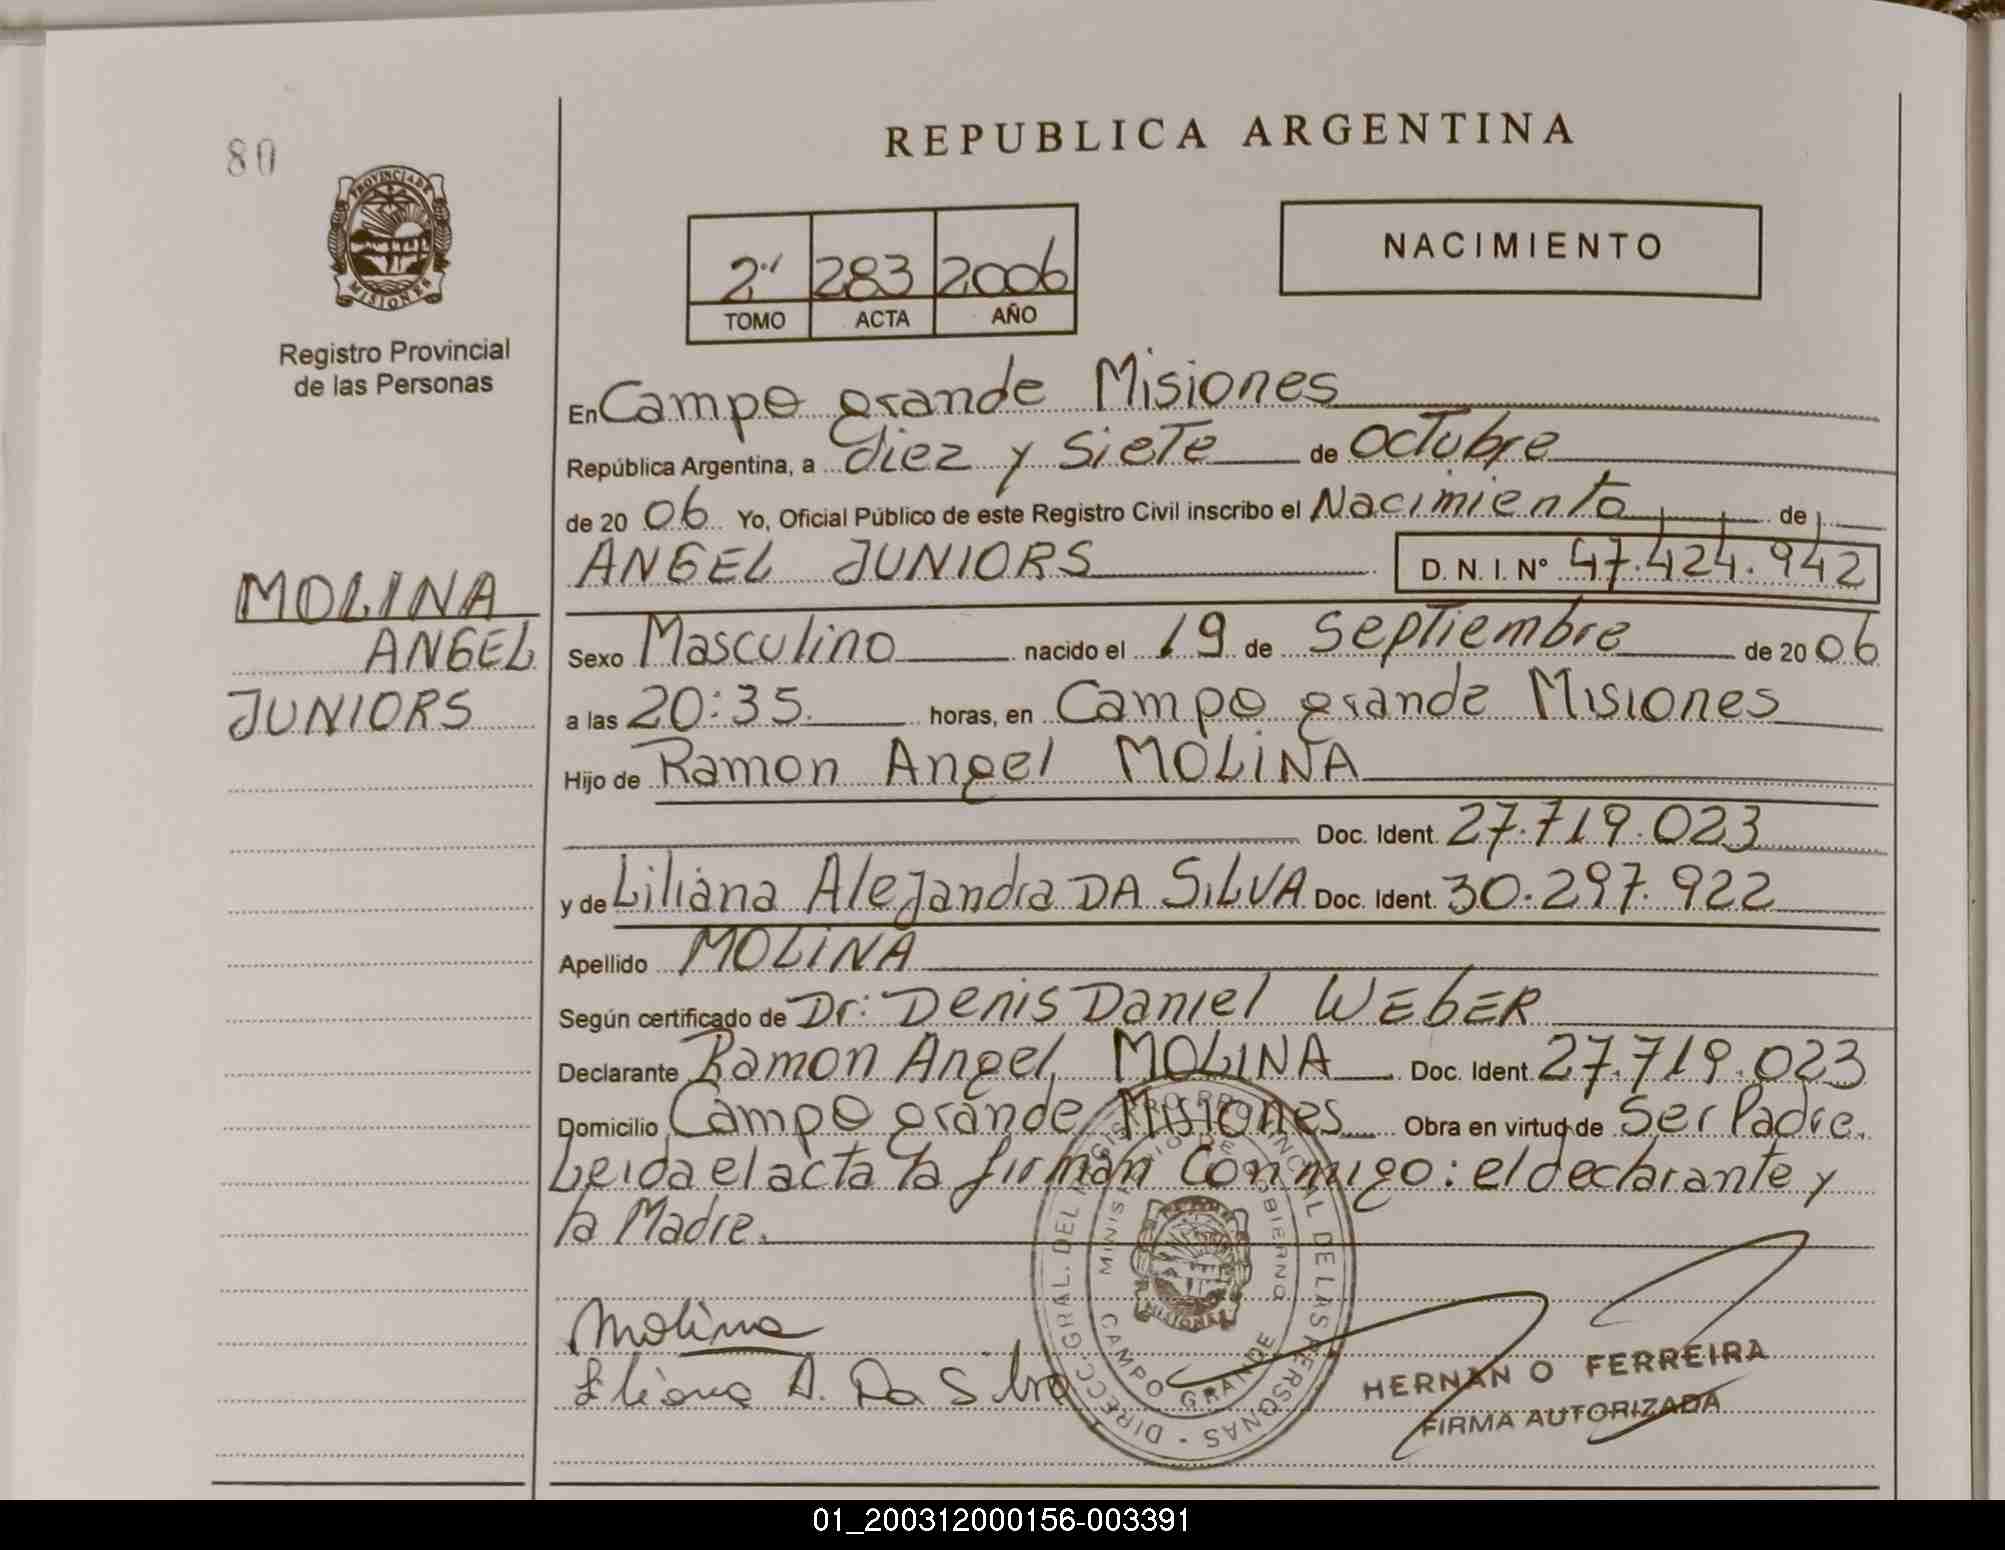 80
REPUBLICA ARGENTINA
PROVINCIA DE
MISIONES
Registro Provincial
de las Personas
2º 283 2006
TOMO ACTA AÑO
NACIMIENTO
En Campo grande Misiones
República Argentina, a diez y siete de octubre
de 20 06 Yo, Oficial Público de este Registro Civil inscribo el Nacimiento de
ANGEL JUNIORS D.N.I. Nº 47.424.942
MOLINA
ANGEL
JUNIORS
Sexo Masculino nacido el 19 de Septiembre de 20 06
a las 20:35 horas, en Campo grande Misiones
Hijo de Ramon Angel MOLINA
Doc. Ident. 27.719.023
y de Liliana Alejandra DA SILVA Doc. Ident. 30.297.922
Apellido MOLINA
Según certificado de Dr: Denis Daniel WEBER
Declarante Ramon Angel MOLINA Doc. Ident. 27.719.023
Domicilio Campo grande Misiones Obra en virtud de Ser Padre.
Leida el acta la firman Conmigo: el declarante y
la Madre.
DIRECC. GRAL. DEL REGISTRO PROVINCIAL DE LAS PERSONAS -
MINISTERIO DE GOBIERNO
CAMPO GRANDE
MISIONES
Molina
Liliana A. Da Silva
HERNAN O FERREIRA
FIRMA AUTORIZADA
01_200312000156-003391